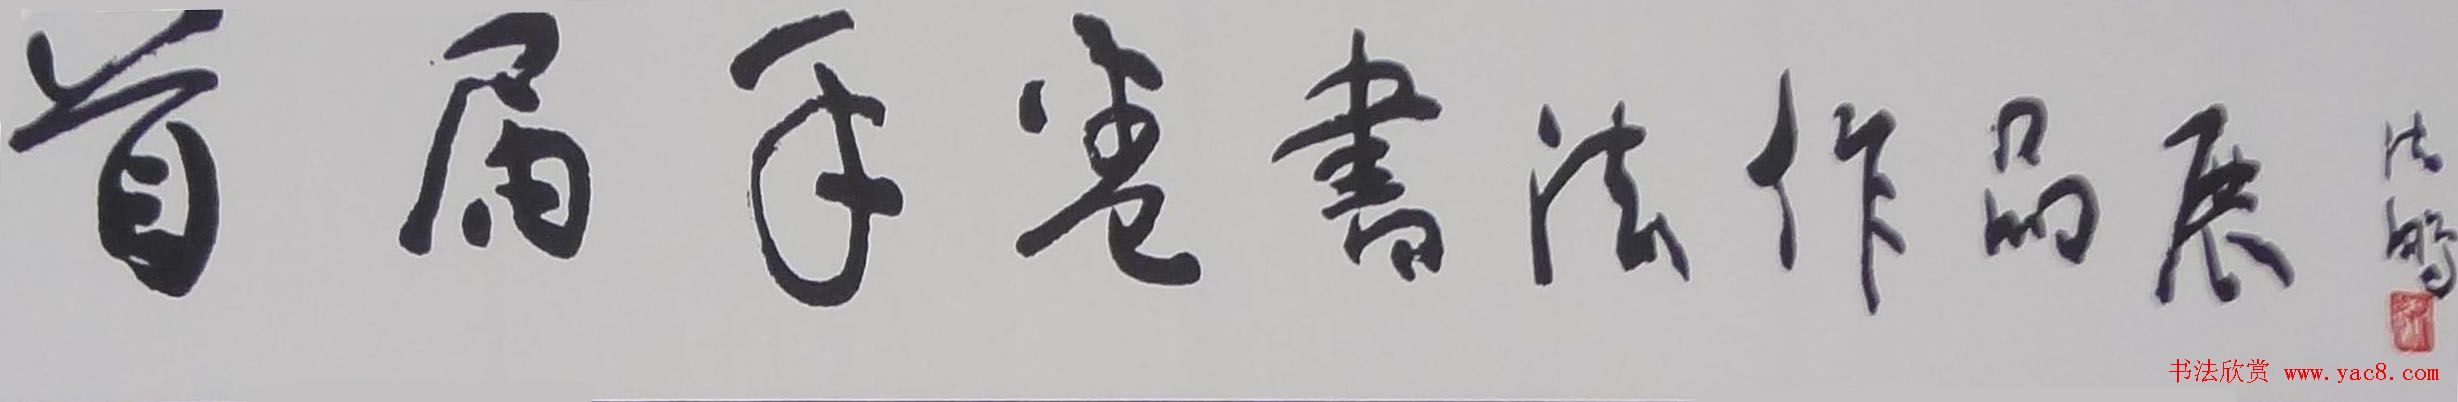 首届手卷書法作品展
沈鹏
书法欣赏 www.yac8.com